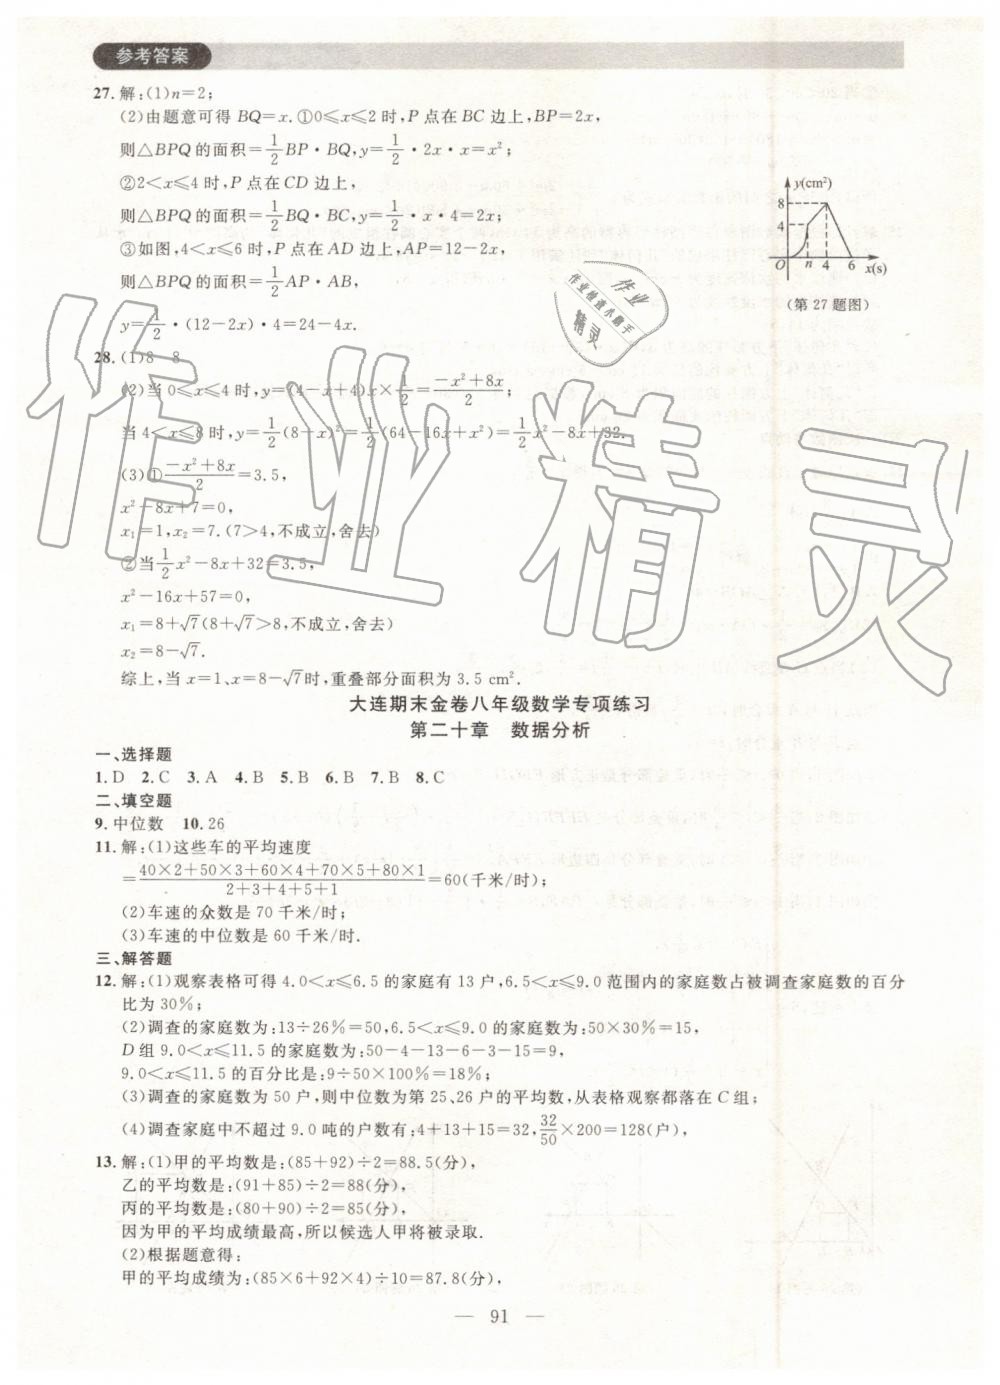 参考答案
27.解:(1)n=2;
(2)由题意可得 BQ=x.①0≤x≤2 时,P 点在 BC 边上,BP=2x,
则△BPQ 的面积=1/2 BP·BQ,y=1/2·2x·x=x²;
②2<x≤4 时,P 点在 CD 边上,
则△BPQ 的面积=1/2 BQ·BC,y=1/2·x·4=2x;
③如图,4<x≤6 时,P 点在 AD 边上,AP=12-2x,
则△BPQ 的面积=1/2 AP·AB,
y=1/2·(12-2x)·4=24-4x.
y(cm²)
8
4
O n 4 6 x(s)
(第 27 题图)
作业
作业检查小助手
精灵
28.(1)8 8
(2)当 0≤x≤4 时,y=(4-x+4)x×1/2=(-x²+8x)/2;
当 4<x≤8 时,y=1/2(8-x)²=1/2(64-16x+x²)=1/2x²-8x+32.
(3)①(-x²+8x)/2=3.5,
x²-8x+7=0,
x₁=1,x₂=7.(7>4,不成立,舍去)
②当1/2x²-8x+32=3.5,
x²-16x+57=0,
x₁=8+√7(8+√7>8,不成立,舍去)
x₂=8-√7.
综上,当 x=1、x=8-√7时,重叠部分面积为 3.5 cm².
作业精灵
大连期末金卷八年级数学专项练习
第二十章 数据分析
一、选择题
1.D 2.C 3.A 4.B 5.B 6.B 7.B 8.C
二、填空题
9.中位数 10.26
11.解:(1)这些车的平均速度
=(40×2+50×3+60×4+70×5+80×1)/(2+3+4+5+1)=60(千米/时);
(2)车速的众数是 70 千米/时;
(3)车速的中位数是 60 千米/时.
三、解答题
12.解:(1)观察表格可得 4.0<x≤6.5 的家庭有 13 户,6.5<x≤9.0 范围内的家庭数占被调查家庭数的百分
比为 30%;
(2)调查的家庭数为:13÷26%=50,6.5<x≤9.0 的家庭数为:50×30%=15,
D 组 9.0<x≤11.5 的家庭数为:50-4-13-6-3-15=9,
9.0<x≤11.5 的百分比是:9÷50×100%=18%;
(3)调查的家庭数为 50 户,则中位数为第 25、26 户的平均数,从表格观察都落在 C 组;
(4)调查家庭中不超过 9.0 吨的户数有:4+13+15=32,32/50×200=128(户),
13.解:(1)甲的平均数是:(85+92)÷2=88.5(分),
乙的平均数是:(91+85)÷2=88(分),
丙的平均数是:(80+90)÷2=85(分),
因为甲的平均成绩最高,所以候选人甲将被录取.
(2)根据题意得:
甲的平均成绩为:(85×6+92×4)÷10=87.8(分),
— 91 —